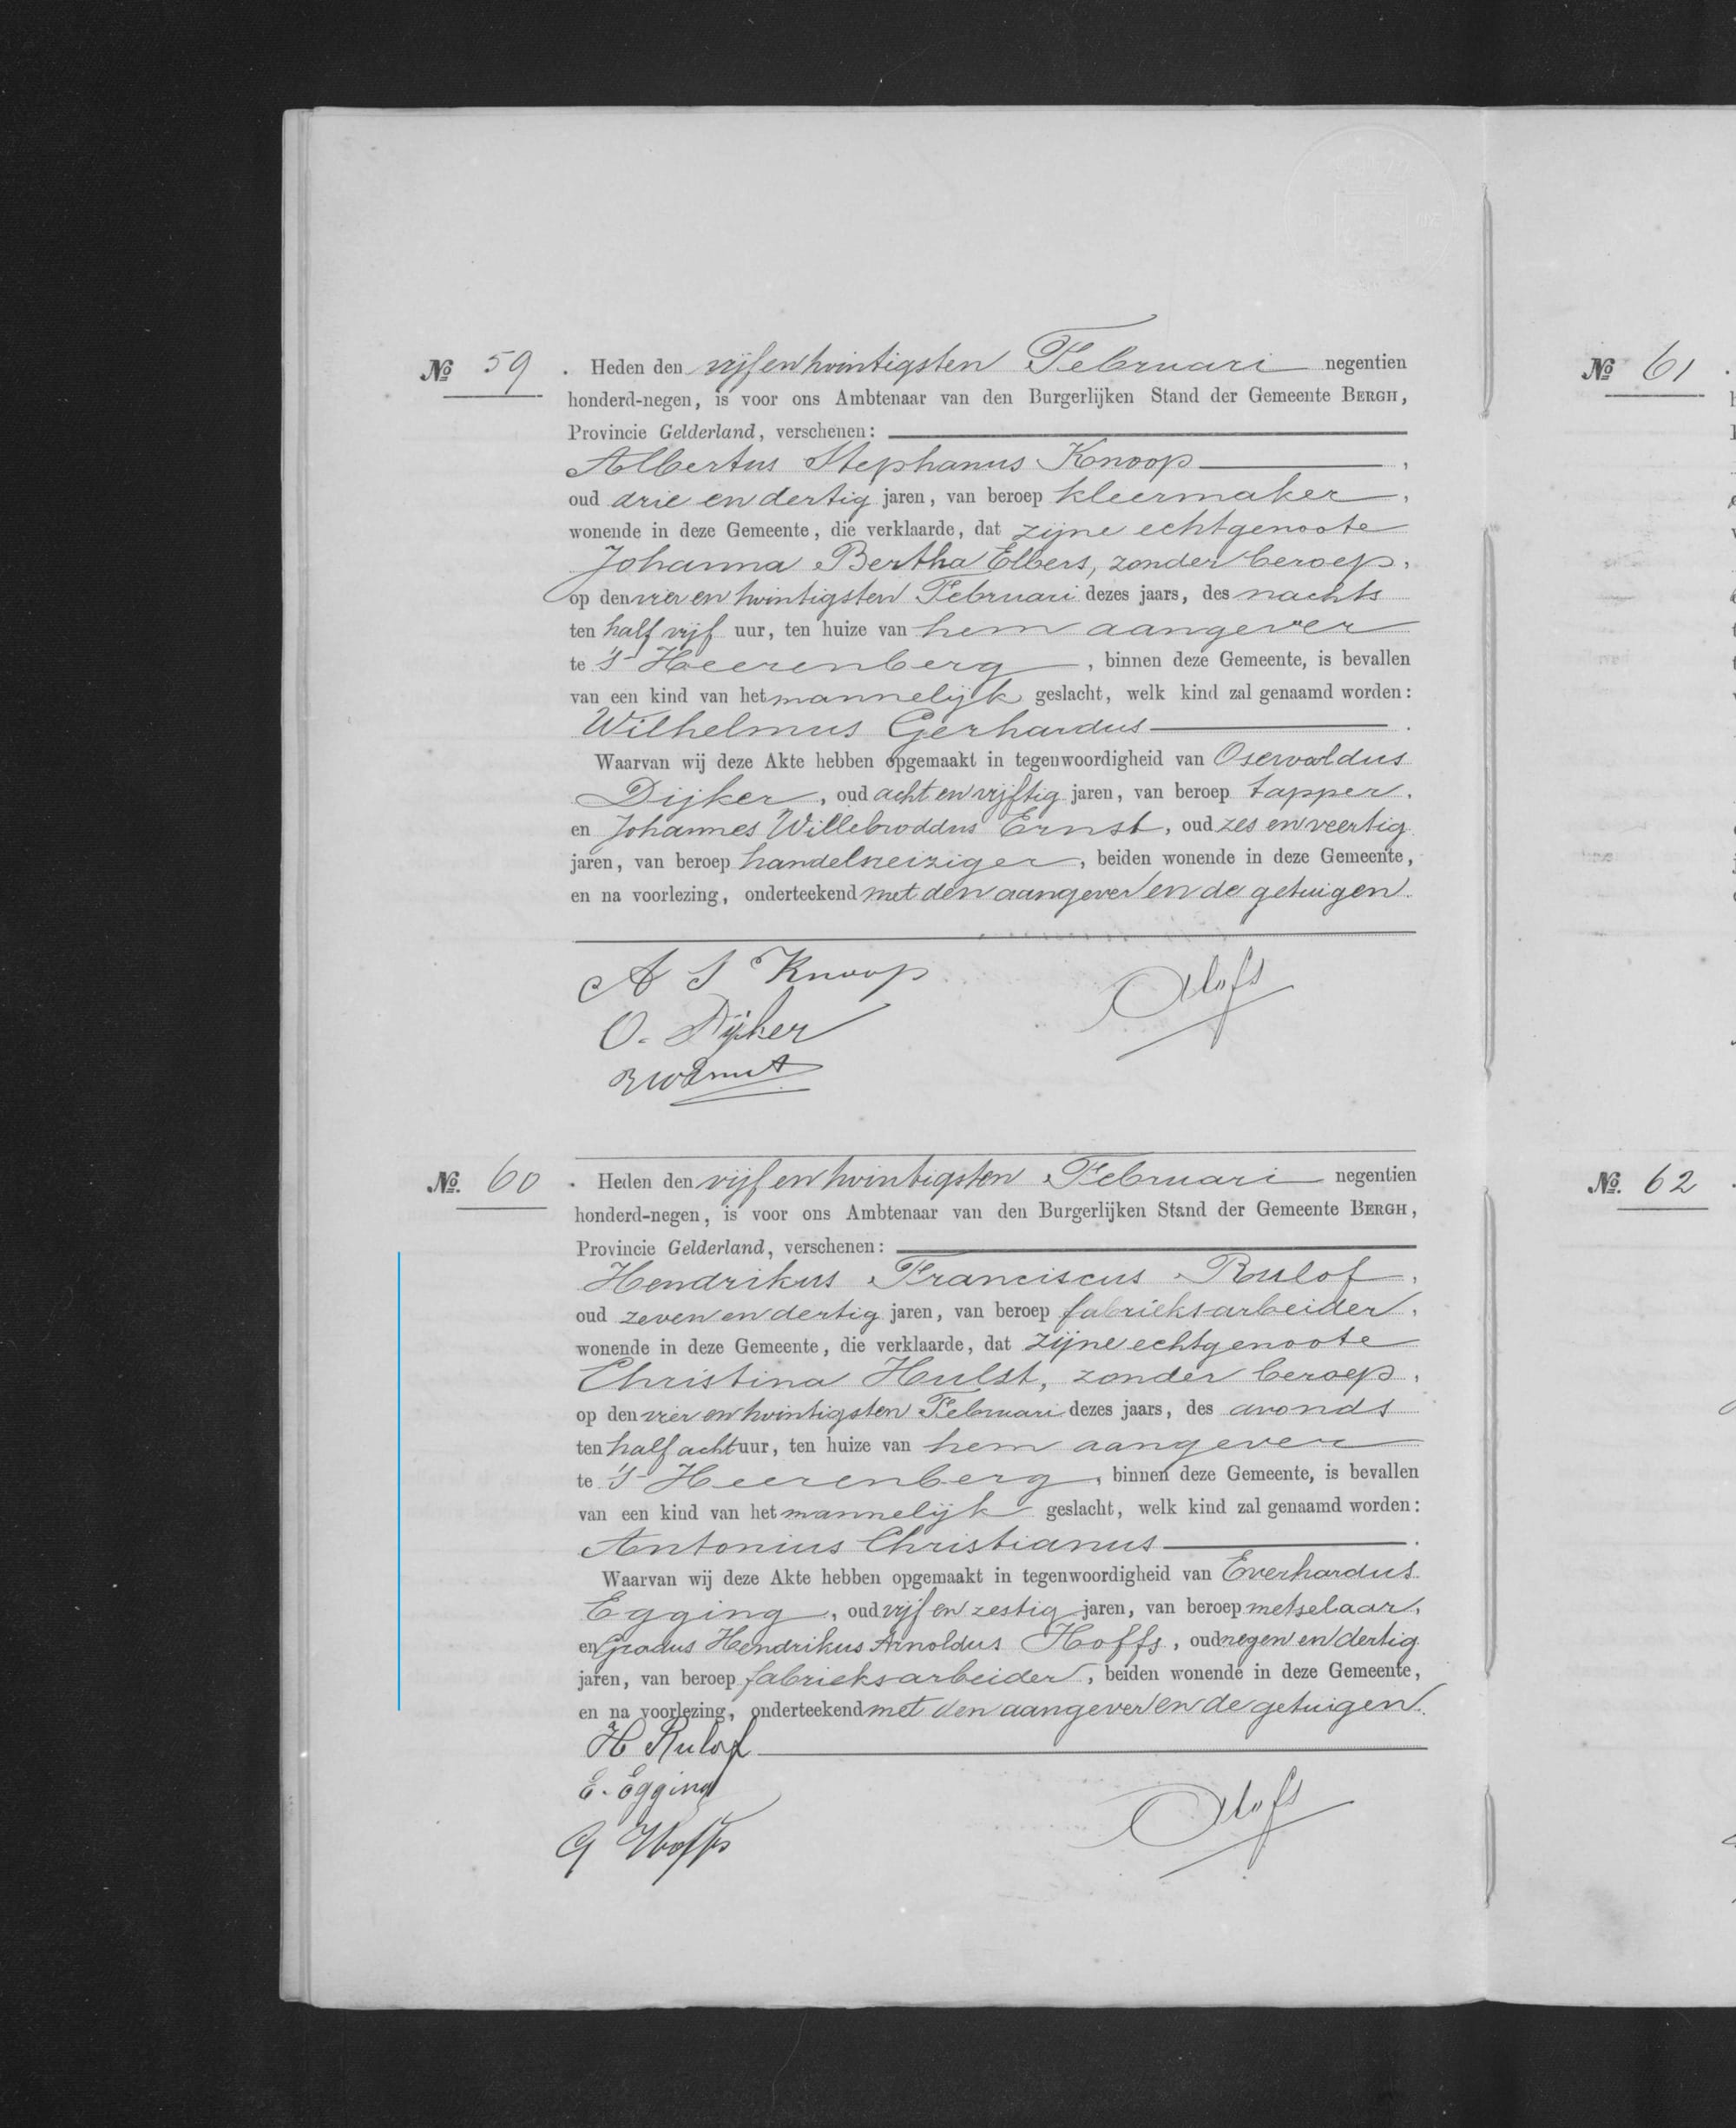 № 59. Heden den vijf en twintigsten Februari negentien
honderd-negen, is voor ons Ambtenaar van den Burgerlijken Stand der Gemeente BERGH,
Provincie Gelderland, verschenen:
Albertus Stephanus Knoop,
oud drie en dertig jaren, van beroep kleermaker,
wonende in deze Gemeente, die verklaarde, dat zijne echtgenoote
Johanna Bertha Elbers, zonder beroep,
op den vier en twintigsten Februari dezes jaars, des nachts
ten half vijf uur, ten huize van hem aangever
te 's-Heerenberg, binnen deze Gemeente, is bevallen
van een kind van het mannelijk geslacht, welk kind zal genaamd worden:
Wilhelmus Gerhardus.
Waarvan wij deze Akte hebben opgemaakt in tegenwoordigheid van Osewoldus
Dijker, oud acht en vijftig jaren, van beroep tapper,
en Johannes Willebroddus Ernst, oud zes en veertig
jaren, van beroep handelsreiziger, beiden wonende in deze Gemeente,
en na voorlezing, onderteekend met den aangever en de getuigen.
A S Knoop
O. Dijker
№ 60. Heden den vijf en twintigsten Februari negentien
honderd-negen, is voor ons Ambtenaar van den Burgerlijken Stand der Gemeente BERGH,
Provincie Gelderland, verschenen:
Hendrikus Franciscus Rulof,
oud zeven en dertig jaren, van beroep fabrieksarbeider,
wonende in deze Gemeente, die verklaarde, dat zijne echtgenoote
Christina Hulst, zonder beroep,
op den vier en twintigsten Februari dezes jaars, des avonds
ten half acht uur, ten huize van hem aangever
te 's-Heerenberg, binnen deze Gemeente, is bevallen
van een kind van het mannelijk geslacht, welk kind zal genaamd worden:
Antonius Christianus.
Waarvan wij deze Akte hebben opgemaakt in tegenwoordigheid van Everhardus
Egging, oud vijf en zestig jaren, van beroep metselaar,
en Gradus Hendrikus Arnoldus Hoffs, oud negen en dertig
jaren, van beroep fabrieksarbeider, beiden wonende in deze Gemeente,
en na voorlezing, onderteekend met den aangever en de getuigen.
H Rulof
E. Egging
G Hoffs
№ 61.
№ 62